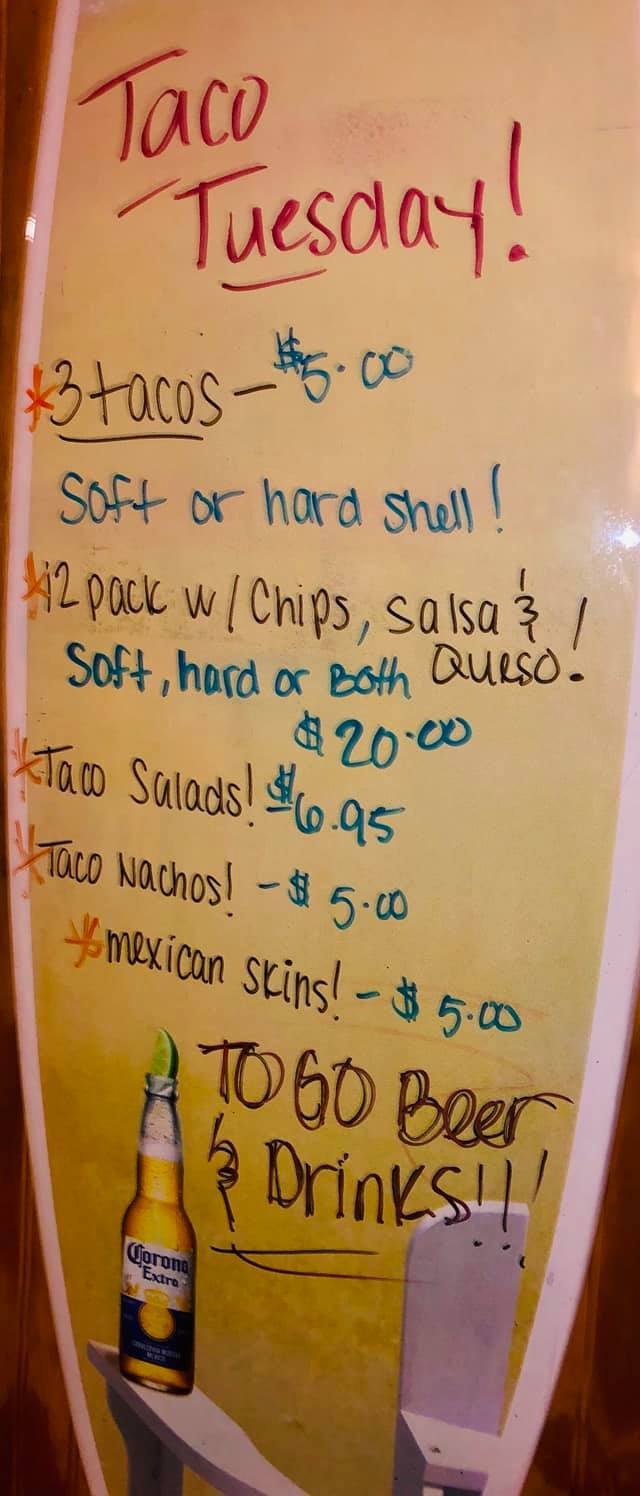 Taco
Tuesday!
*3 tacos - $5.00
Soft or hard shell!
*12 pack w/ Chips, salsa &
Soft, hard or Both QUESO!
$20.00
*Taco Salads! $6.95
*Taco Nachos! - $5.00
*mexican skins! - $5.00
TO GO Beer
& Drinks!!!
Corona
Extra